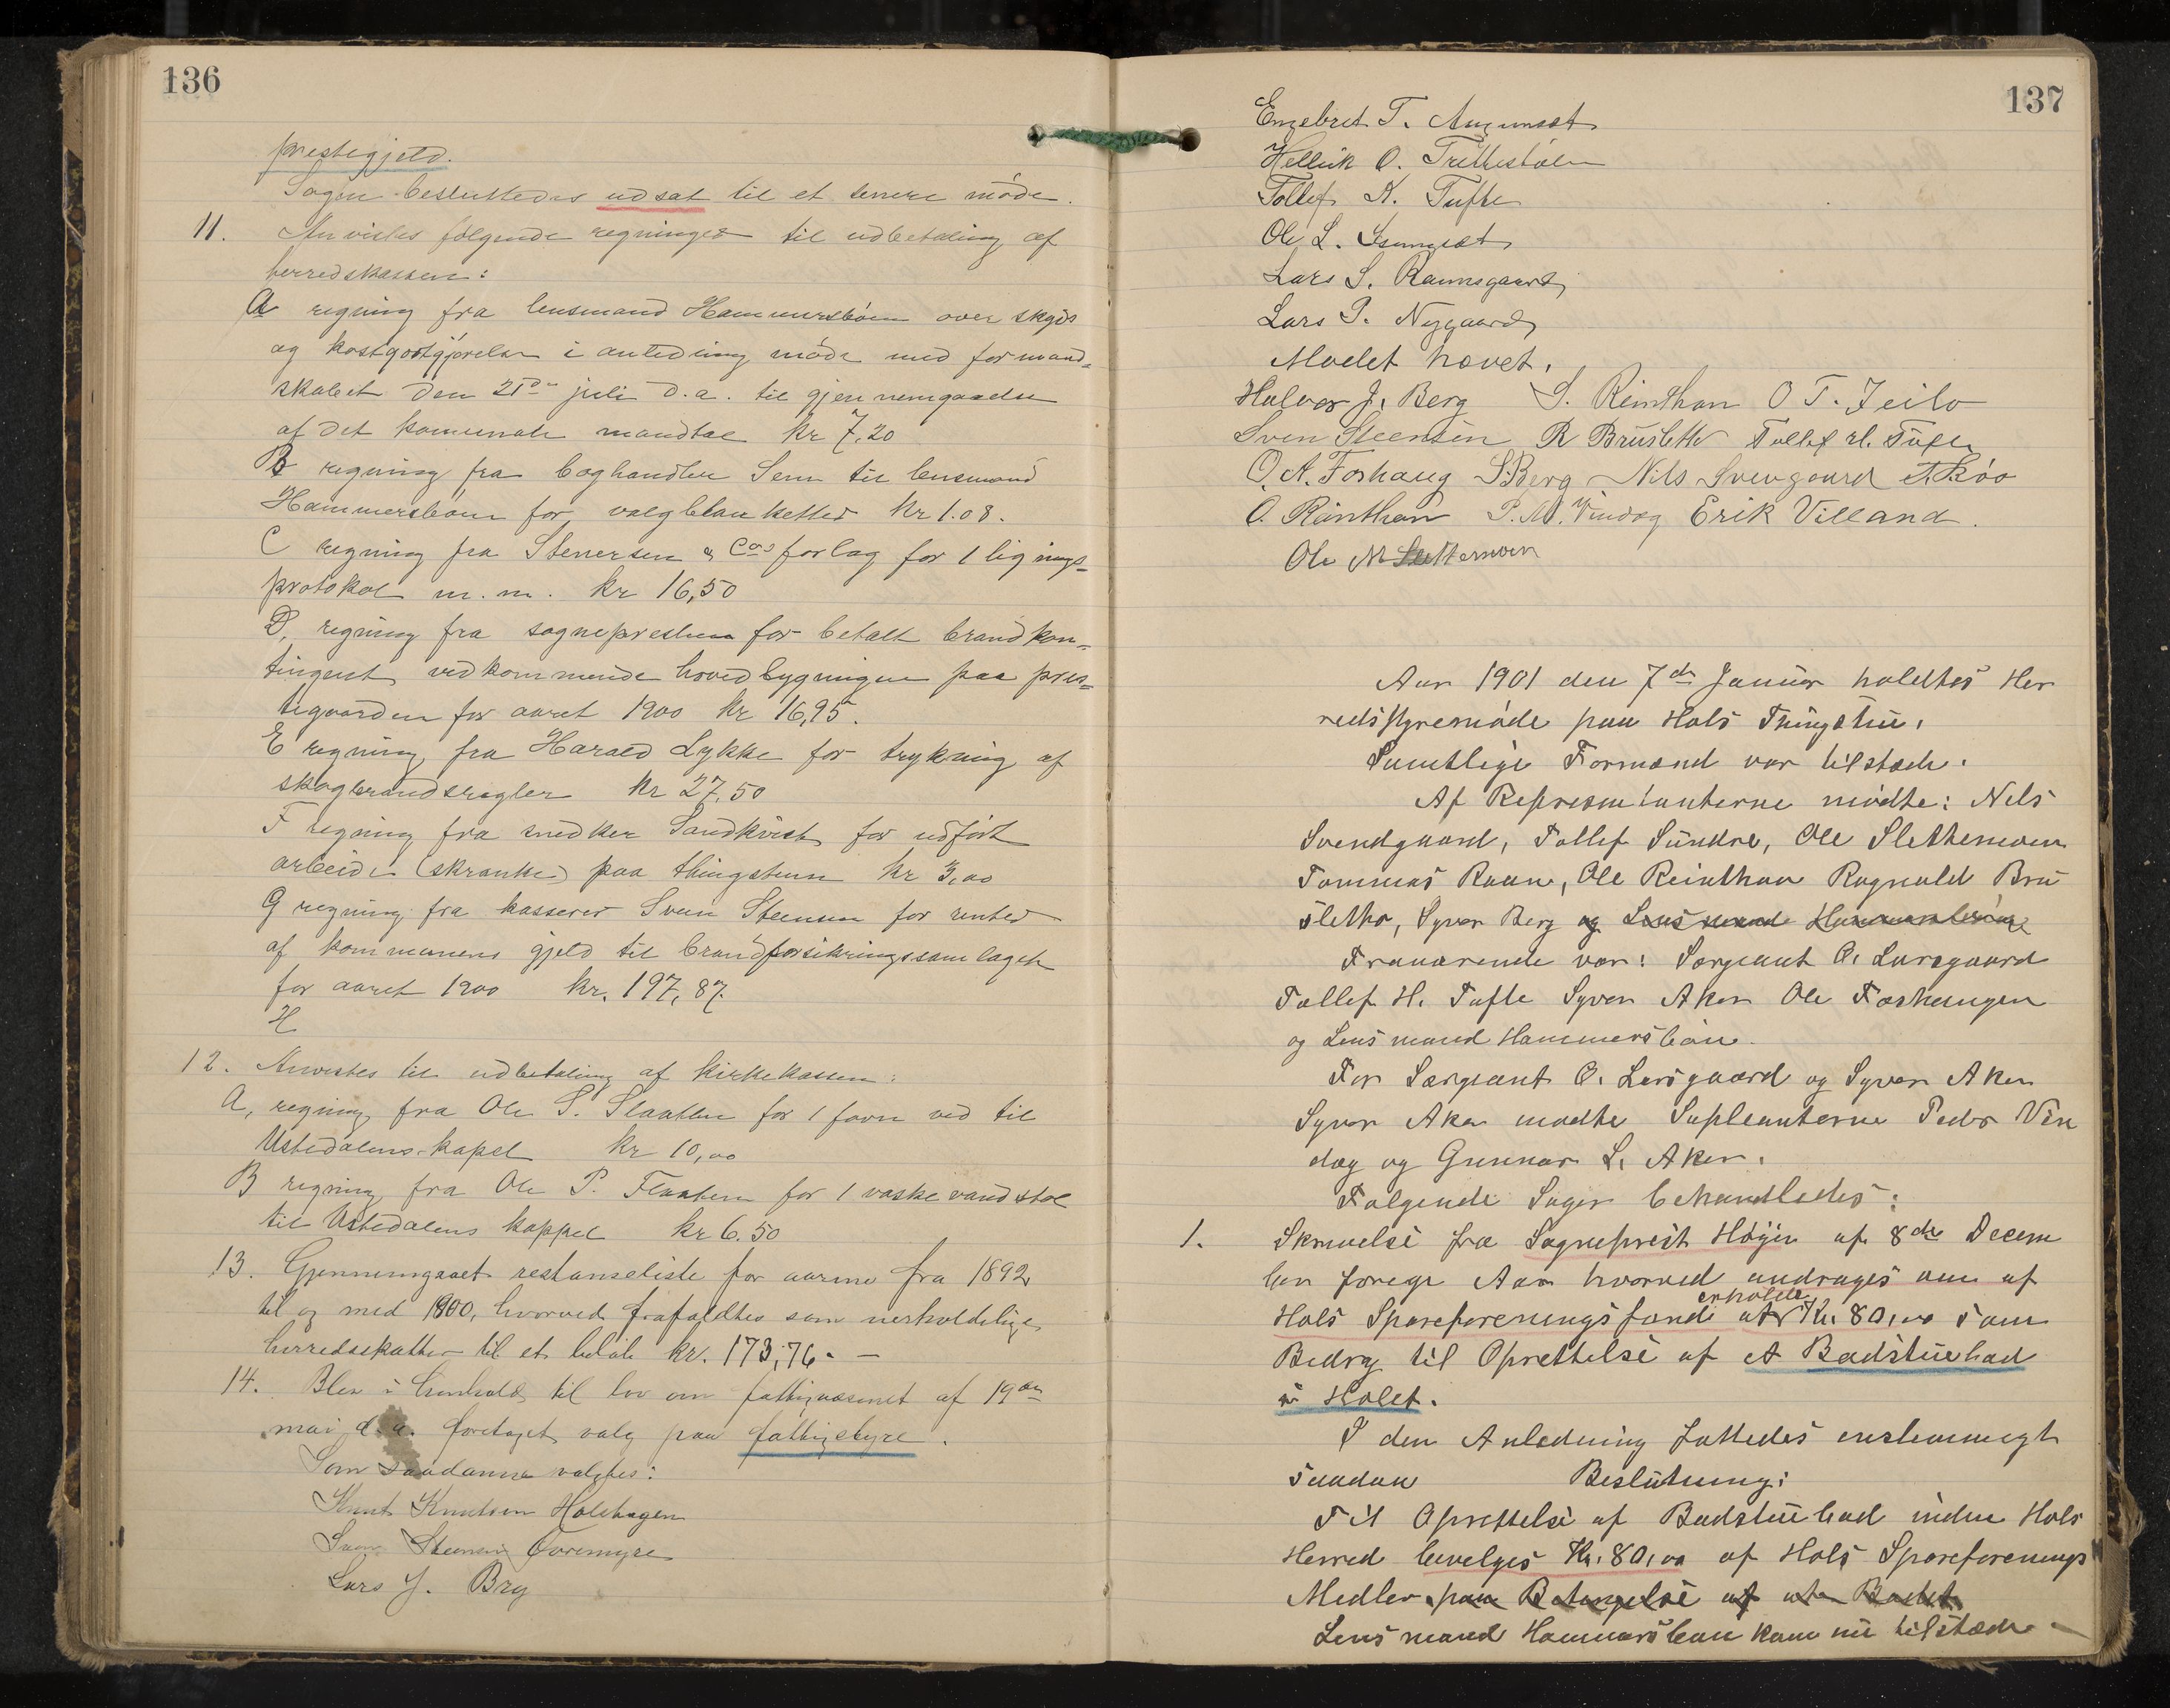 136
prestegjeld.
Sagen besluttedes udsat til et senere møde.
11. Anvistes følgende regninger til udbetaling af
herredskassen:
A regning fra lensmand Hammersbøen over skyds
og kostgodtgjørelse i anledning møde med formand-
skabet den 21de juli d.a. til gjennemgaaelse
af det komunale mandtal kr 7,20
B regning fra boghandler Senn til lensmand
Hammersbøen for valgblanketter kr 1.08.
C regning fra Stenersen & Cos forlag for 1 lignings-
protokol m.m. kr 16,50
D, regning fra sognepresten for betalt brandkon-
tingent vedkommende hovedbygningen paa pres-
tegaarden for aaret 1900 kr 16,95.
E regning fra Harald Lykke for trykning af
skogbrandsregler kr 27,50
F regning fra snedker Sandkvist for udført
arbeide (skranke) paa thingstuen kr 3,00
G regning fra kasserer Sven Steensen for renter
af kommunens gjeld til brandforsikringssamlaget
for aaret 1900 kr. 197,87.
H
12. Anvistes til udbetaling af kirkekassen:
A, regning fra Ole S. Slaatten for 1 favn ved til
Ustedalens kapel kr 10,00
B regning fra Ole P. Flaaten for 1 vaskevandstol
til Ustedalens kappel kr 6.50
13. Gjennemgaaet restanseliste for aarene fra 1892
til og med 1900, hvorved frafaldtes som uerholdelige
herredsskatter til et beløb kr. 173,76. —
14. Blev i henhold til lov om fattigvæsenet af 19de
mai d.a. foretaget valg paa fattigstyre.
Som saadanne valgtes:
Knut Knutsen Holehagen
Sven Steensen Øvremyre
Lars J. Brg
137
Engebret T.
Hellik O. Trettestølen
Tollef K. Tufte
Ole L.
Lars S. Raunsgaard
Lars P. Nygaard
Mødet hævet.
Halvor J. Berg S. Reinthon O T. Jeilo
Sven Steensen R Brusletto Tollef H. Tufte
O. A. Foshaug S Berg Nils Svengaard
O. Reinthon P. M. Vindeg Erik Villand.
Ole M Slettemoen
Aar 1901 den 7de Januar holdtes Her
redsstyremøde paa Hols Thingstue.
Samtlige Formænd var tilstede.
Af Representanterne mødte: Nils
Svendgaard, Tollef Sundre, Ole Slettemoen
Tommas Raan, Ole Reinthon Ragnvald Bru
sletto, Syver Berg og Lensmand Hammersbøen
Fraværende var: Sergeant O. Larsgaard
Tollef H. Tufte Syver Aker Ole Foshaugen
og Lensmand Hammersbøen.
For Sergeant O. Larsgaard og Syver Aker
Syver Aker mødte Supleanterne Peder Vin
deg og Gunnar L. Aker.
Følgende Sager behandledes:
1. Skrivelse fra Sogneprest Høyer af 8de Decem
ber forrige Aar hvorved andrages om af
Hols Spareforeningsfond at erholde Kr. 80,00 som
Bidrag til Oprettelse af et Badstuebad
i Holet.
I den Anledning fattedes enstemmigt
saadan Beslutning:
Til Oprettelse af Badstuebad inden Hols
Herred bevilges Kr. 80,00 af Hols Spareforenings
Midler paa Betingelse af at Badet
Lensmand Hammersbøen kom nu tilstede —